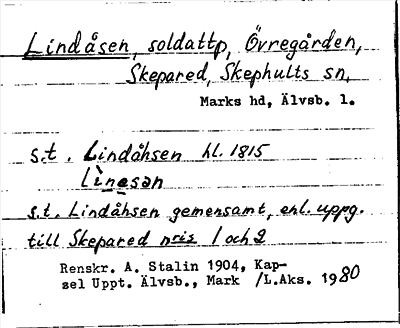 Lindåsen, soldattp, Övregården,
Skepared, Skephults sn,
Marks hd, Älvsb. l.
s.t. Lindåhsen hl. 1815
Lìnesan
s.t. Lindåhsen gemensamt, enl. uppg.
till Skepared nris 1 och 2
Renskr. A. Stalin 1904, Kap-
sel Uppt. Älvsb., Mark /L.Aks. 1980